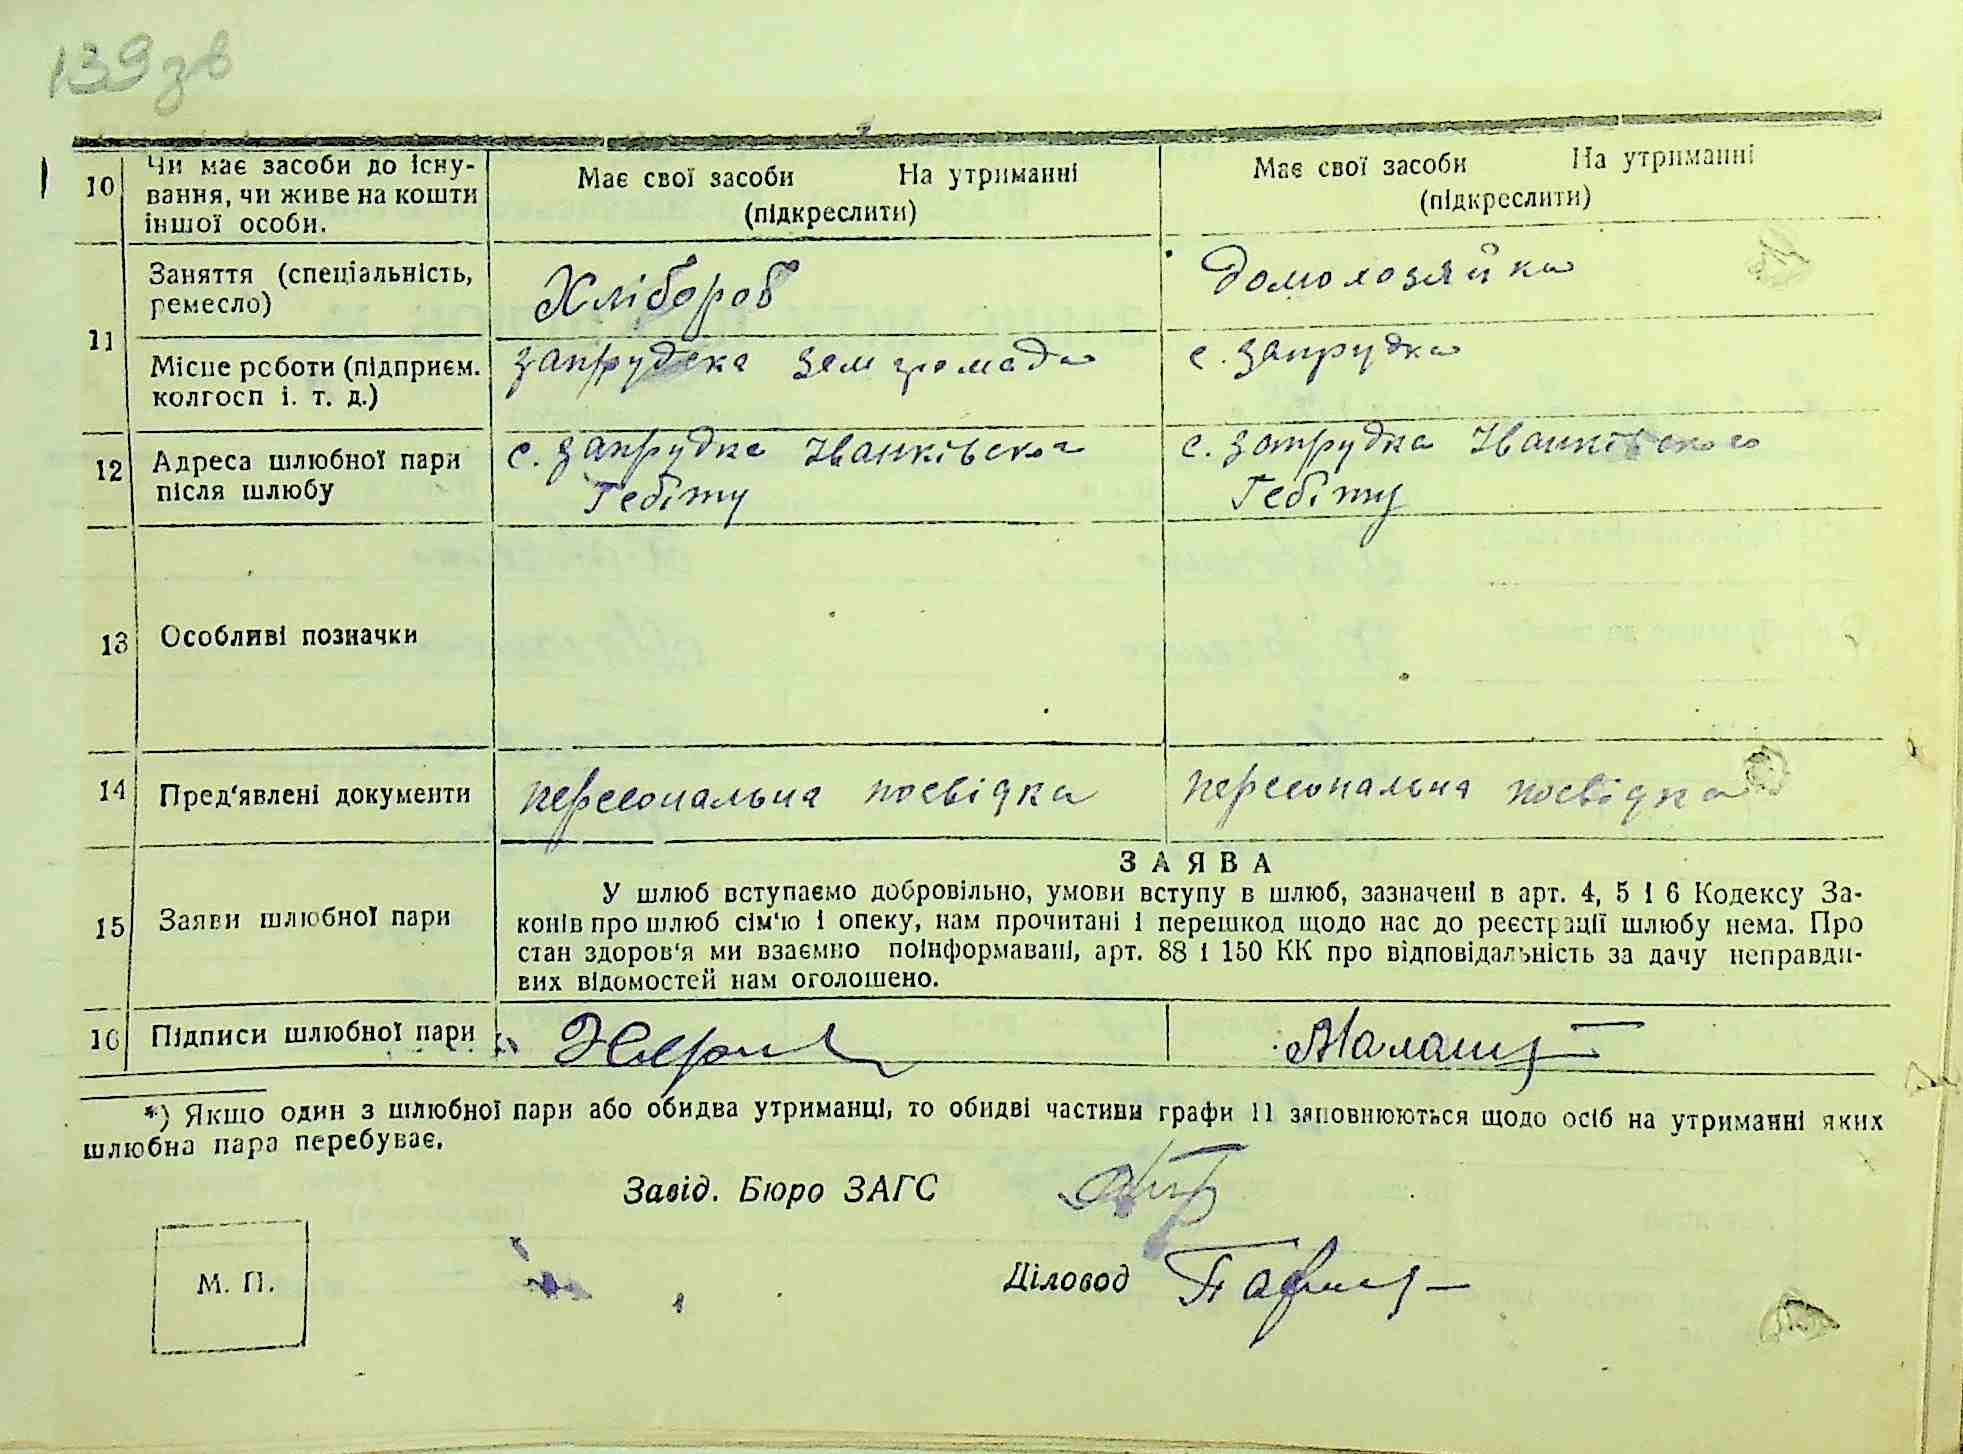 139 зв
10 Чи має засоби до існу-
вання, чи живе на кошти
іншої особи.
Має свої засоби На утриманні
(підкреслити)
Має свої засоби На утриманні
(підкреслити)
11 Заняття (спеціальність,
ремесло)
Хлібороб
домохозяйка
Місце роботи (підприєм.
колгосп і. т. д.)
запрудска земгромада
с. запрудка
12 Адреса шлюбної пари
після шлюбу
с. запрудка Іванківсько
Гебіту
с. запрудка Іванківского
Гебіту
13 Особливі позначки
14 Пред‘явлені документи
персональна посвідка
персональна посвідка
15 Заяви шлюбної пари
ЗАЯВА
У шлюб вступаємо добровільно, умови вступу в шлюб, зазначені в арт. 4, 5 і 6 Кодексу За-
конів про шлюб сім‘ю і опеку, нам прочитані і перешкод щодо нас до реєстрації шлюбу нема. Про
стан здоров‘я ми взаємно поінформавані, арт. 88 і 150 КК про відповідальність за дачу неправди-
вих відомостей нам оголошено.
16 Підписи шлюбної пари
*) Якщо один з шлюбної пари або обидва утриманці, то обидві частини графи 11 заповнюються щодо осіб на утриманні яких
шлюбна пара перебуває.
Завід. Бюро ЗАГС
Діловод
М. П.